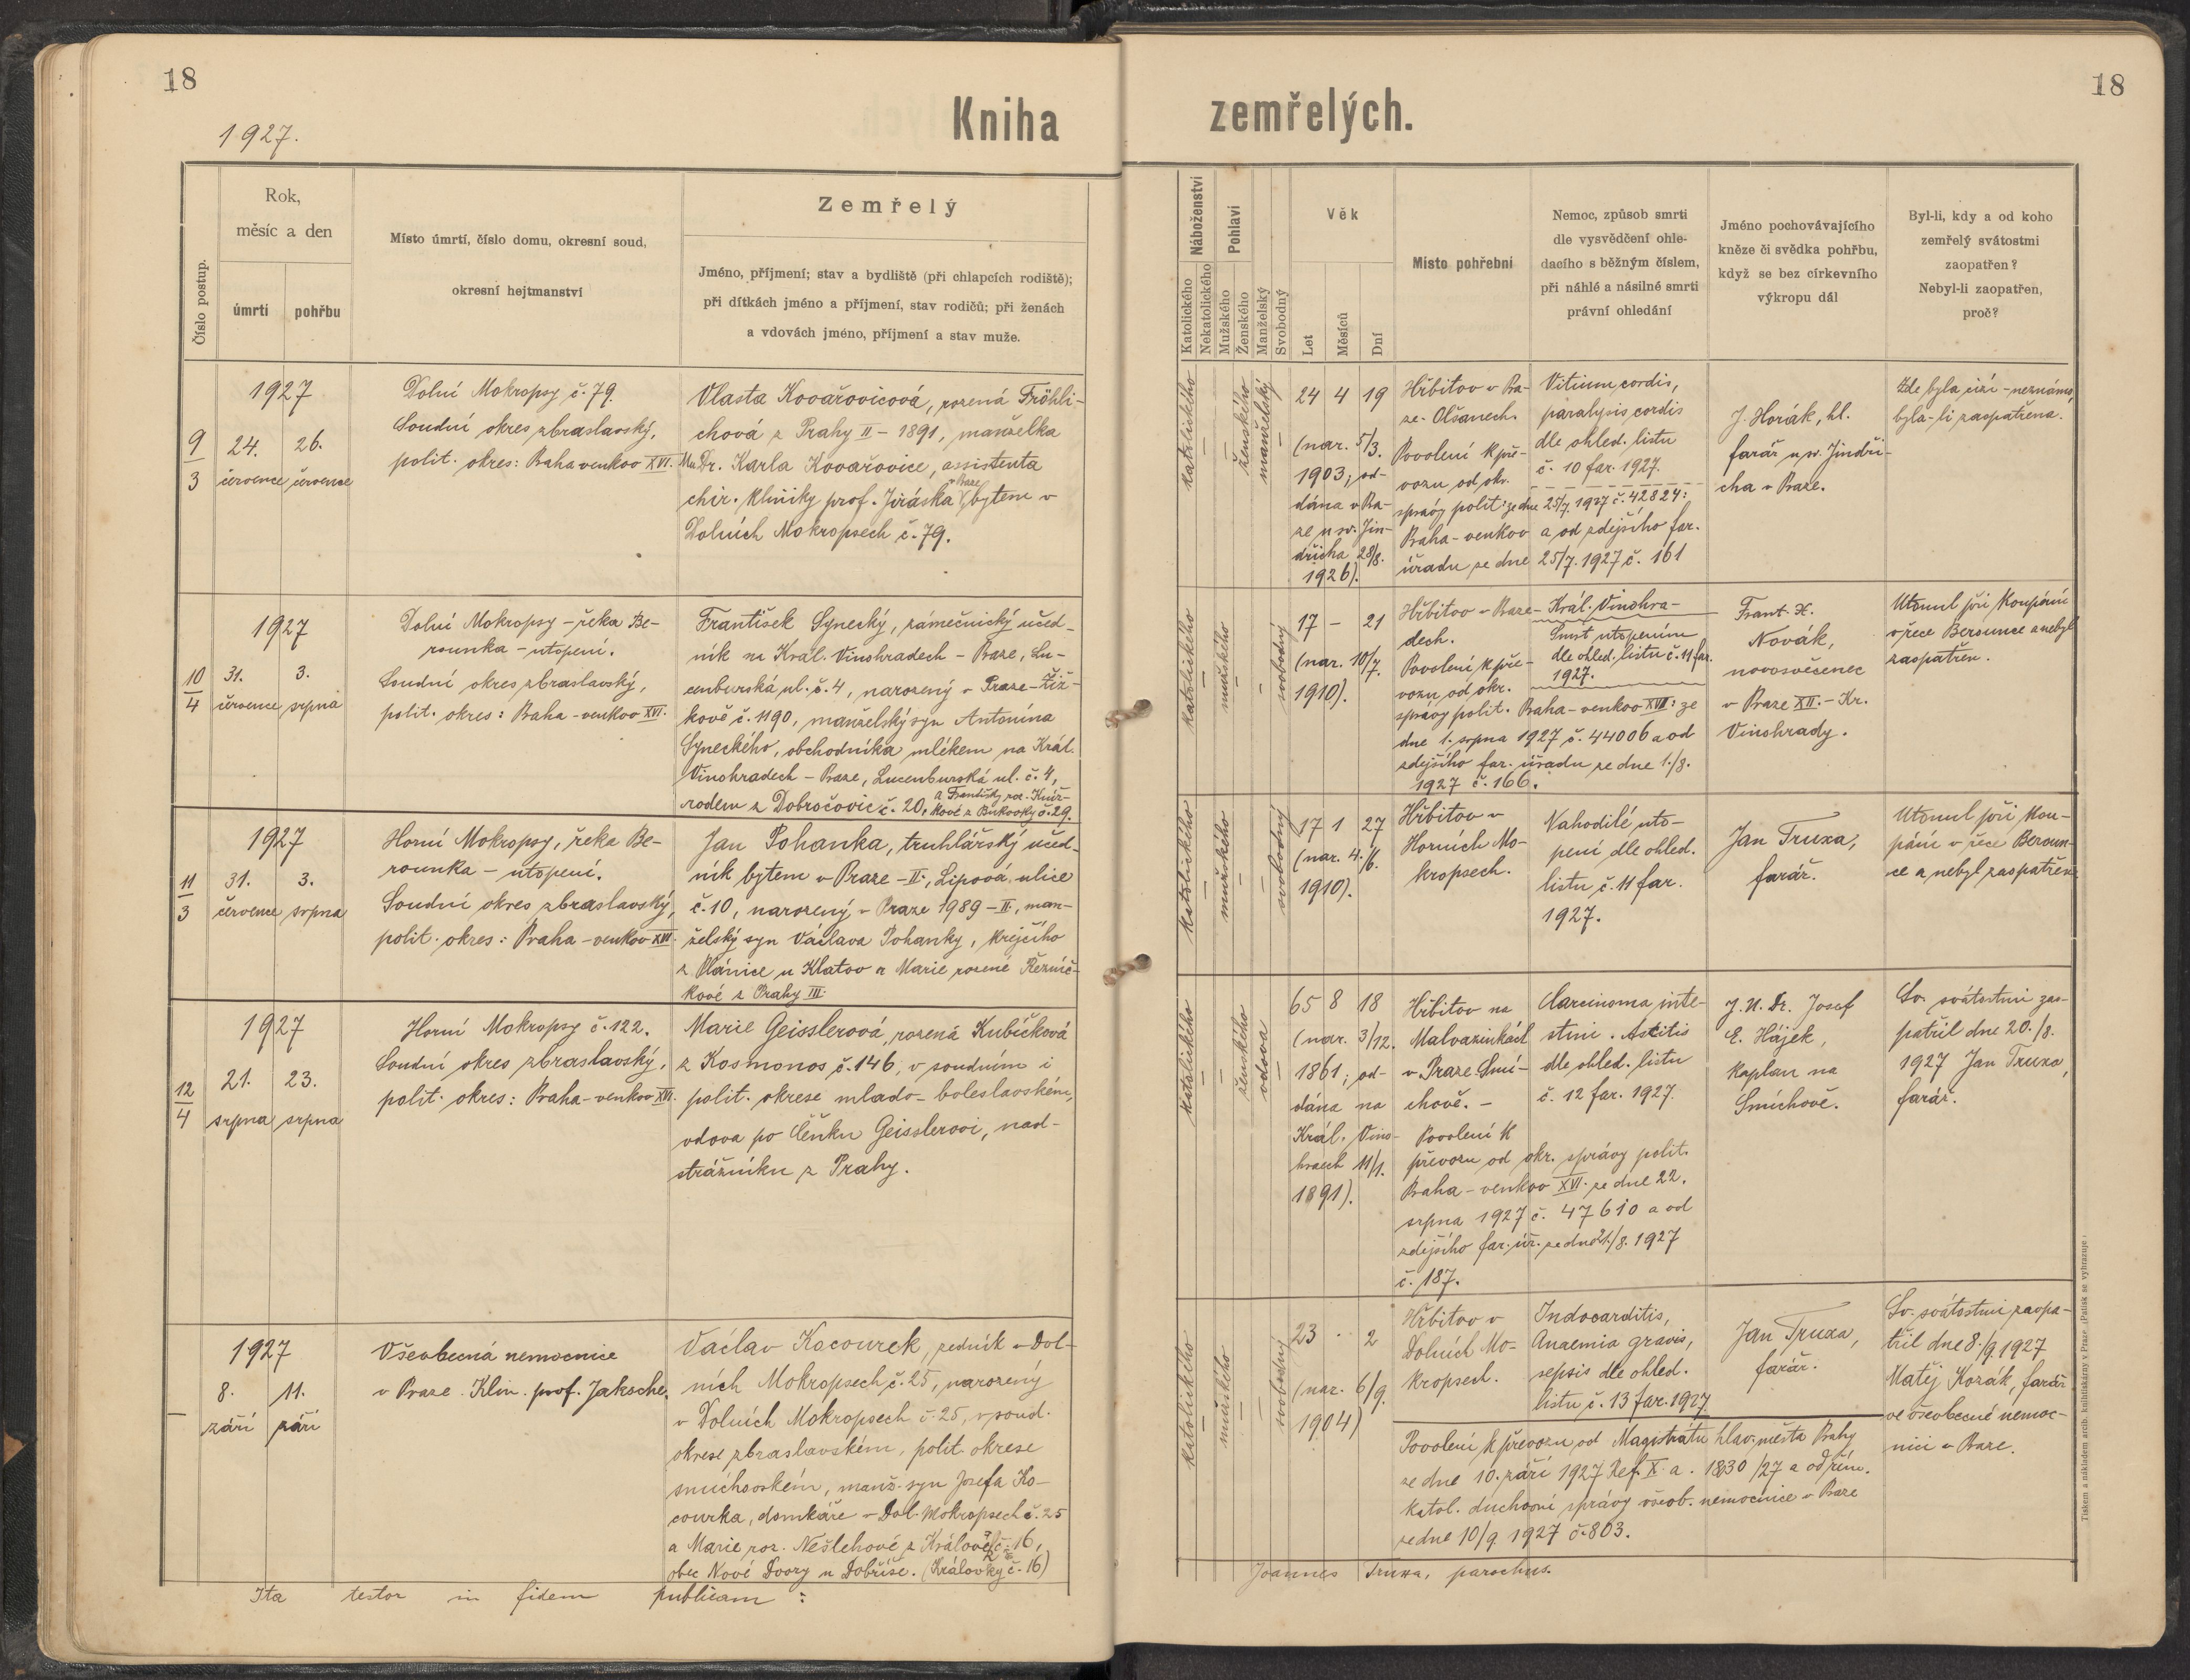 18
1927.
Kniha
Číslo postup.
Rok,
měsíc a den
úmrtí
pohřbu
Místo úmrtí, číslo domu, okresní soud,
okresní hejtmanství
Zemřelý
Jméno, příjmení; stav a bydliště (při chlapcích rodiště);
při dítkách jméno a příjmení, stav rodičů; při ženách
a vdovách jméno, příjmení a stav muže.
9
3
1927
24. 26.
července července
Dolní Mokropsy č. 79.
Soudní okres zbraslavský,
polit. okres: Praha venkov XVI.
Vlasta Kovařovicová, rozená Fröhli-
chová z Prahy II - 1891, manželka
MuDr. Karla Kovařovice, assistenta
chir. kliniky prof. Jiráska v Praze, bytem v
Dolních Mokropsech č. 79.
10
4
1927
31. 3.
července srpna
Dolní Mokropsy - řeka Be-
rounka - utopení.
Soudní okres zbraslavský,
polit. okres: Praha - venkov XVI.
František Synecký, zámečnický učed-
ník na Král. Vinohradech - Praze, Lu-
cenburská ul. č. 4, narozený v Praze - Žiž-
kově č. 1190, manželský syn Antonína
Syneckého, obchodníka mlékem na Král.
Vinohradech - Praze, Lucenburská ul. č. 4,
rodem z Dobročovic č. 20, a Františky roz. Kuíž-
kové z Bukovky č. 29.
11
3
1927
31. 3.
července srpna
Horní Mokropsy, řeka Be-
rounka - utopení.
Soudní okres zbraslavský,
polit. okres: Praha - venkov XVI.
Jan Pohanka, truhlářský učed-
ník bytem v Praze - II., Lipová ulice
č. 10, narozený v Praze 1989 - II, man-
želský syn Václava Pohanky, krejčího
z Plánice u Klatov a Marie rozené Řezníč-
kové z Prahy III.
12
4
1927
21. 23.
srpna srpna
Horní Mokropsy č. 122.
Soudní okres zbraslavský,
polit. okres: Praha - venkov XVI.
Marie Geisslerová, rozená Kubíčková
z Kosmonos č. 146, v soudním i
polit. okrese mlado - boleslavském,
vdova po Čeňku Geisslerovi, nad-
strážníku z Prahy.
1927
8. 11.
září září
Všeobecná nemocnice
v Praze. Klin. prof. Jaksche.
Václav Kocourek, zedník v Dol-
ních Mokropsech č. 25, narozený
v Dolních Mokropsech č. 25, v soud.
okrese zbraslavském, polit. okrese
smíchovském, manž. syn Josefa Ko-
courka, domkáře v Dol. Mokropsech č. 25
a Marie roz. Nešlehové z Královek č. 16,
obec Nové Dvory u Dobříše. (Královky č. 16)
Ita testor in fidem publicam:
18
zemřelých.
Náboženství
Katolického
Nekatolického
Pohlaví
Mužského
Ženského
Manželský
Svobodný
Věk
Let
Měsíců
Dní
Místo pohřební
Nemoc, způsob smrti
dle vysvědčení ohle-
dacího s běžným číslem,
při náhlé a násilné smrti
právní ohledání
Jméno pochovávajícího
kněze či svědka pohřbu,
když se bez církevního
výkropu dál
Byl-li, kdy a od koho
zemřelý svátostmi
zaopatřen?
Nebyl-li zaopatřen,
proč?
katolického
ženského
manželský
24 4 19
(nar. 5/3.
1903; od-
dána v Pra-
ze u sv. Jin-
dřicha 28/8.
1926).
Hřbitov v Pra-
ze - Olšanech.
Povolení k pře-
vozu od okr.
správy polit. ze dne 25/7. 1927 č. 42824:
Praha - venkov a od zdejšího far.
úřadu ze dne 25/7. 1927 č. 161
Vitium cordis,
paralysis cordis
dle ohled. listu
č. 10 far. 1927.
J. Horák, hl.
farář u sv. Jindři-
cha v Praze.
Zde byla cizí - neznámo,
byla-li zaopatřena.
katolického
mužského
svobodný
17 - 21
(nar. 10/7.
1910).
Hřbitov v Praze - Král. Vinohra-
dech.
Povolení k pře-
vozu od okr.
správy polit. Praha - venkov XVI: ze
dne 1. srpna 1927 č. 44006 a od
zdejšího far. úřadu ze dne 1./8.
1927 č. 166.
Smrt utopením
dle ohled. listu č. 11 far.
1927.
Frant. X.
Novák,
novosvěcenec
v Praze XII. - Kr.
Vinohrady.
Utonul při koupání
v řece Berounce a nebyl
zaopatřen.
katolického
mužského
svobodný
17 1 27
(nar. 4./6.
1910).
Hřbitov v
Horních Mo-
kropsech.
Nahodilé uto-
pení dle ohled.
listu č. 11 far.
1927.
Jan Truxa,
farář.
Utonul při kou-
pání v řece Beroun-
ce a nebyl zaopatřen.
katolického
ženského
vdova
65 8 18
(nar. 3/12.
1861; od-
dána na
Král. Vino-
hradech 11/1.
1891).
Hřbitov na
Malvazinkách
v Praze - Smí-
chově. -
Povolení k
převozu od okr. správy polit.
Praha - venkov XVI. ze dne 22.
srpna 1927 č. 47610 a od
zdejšího far. úř. ze dne 21./8. 1927
č. 187.
Carcinoma inte-
stini. Ascitis
dle ohled. listu
č. 12 far. 1927.
J. U. Dr. Josef
E. Hájek,
kaplan na
Smíchově.
Sv. svátostmi zao-
patřil dne 20./8.
1927 Jan Truxa,
farář.
katolického
mužského
svobodný
23 . 2
(nar. 6/9.
1904)
Hřbitov v
Dolních Mo-
kropsech.
Indocarditis,
Anaemia gravis,
sepsis dle ohled.
listu č. 13 far. 1927
Jan Truxa,
farář.
Sv. svátostmi zaopa-
třil dne 8./9 1927
Matěj Kozák, farář
ve všeobecné nemoc-
nici v Praze.
Povolení k převozu od Magistrátu hlav. města Prahy
ze dne 10. září 1927 Ref. X. a. 1830/27 a od řím.
katol. duchovní správy všeob. nemocnice v Praze
ze dne 10/9 1927 č. 803.
Joannes Truxa, parochus.
Tiskem a nákladem arcib. knihtiskárny v Praze. (Patisk se vyhrazuje.)